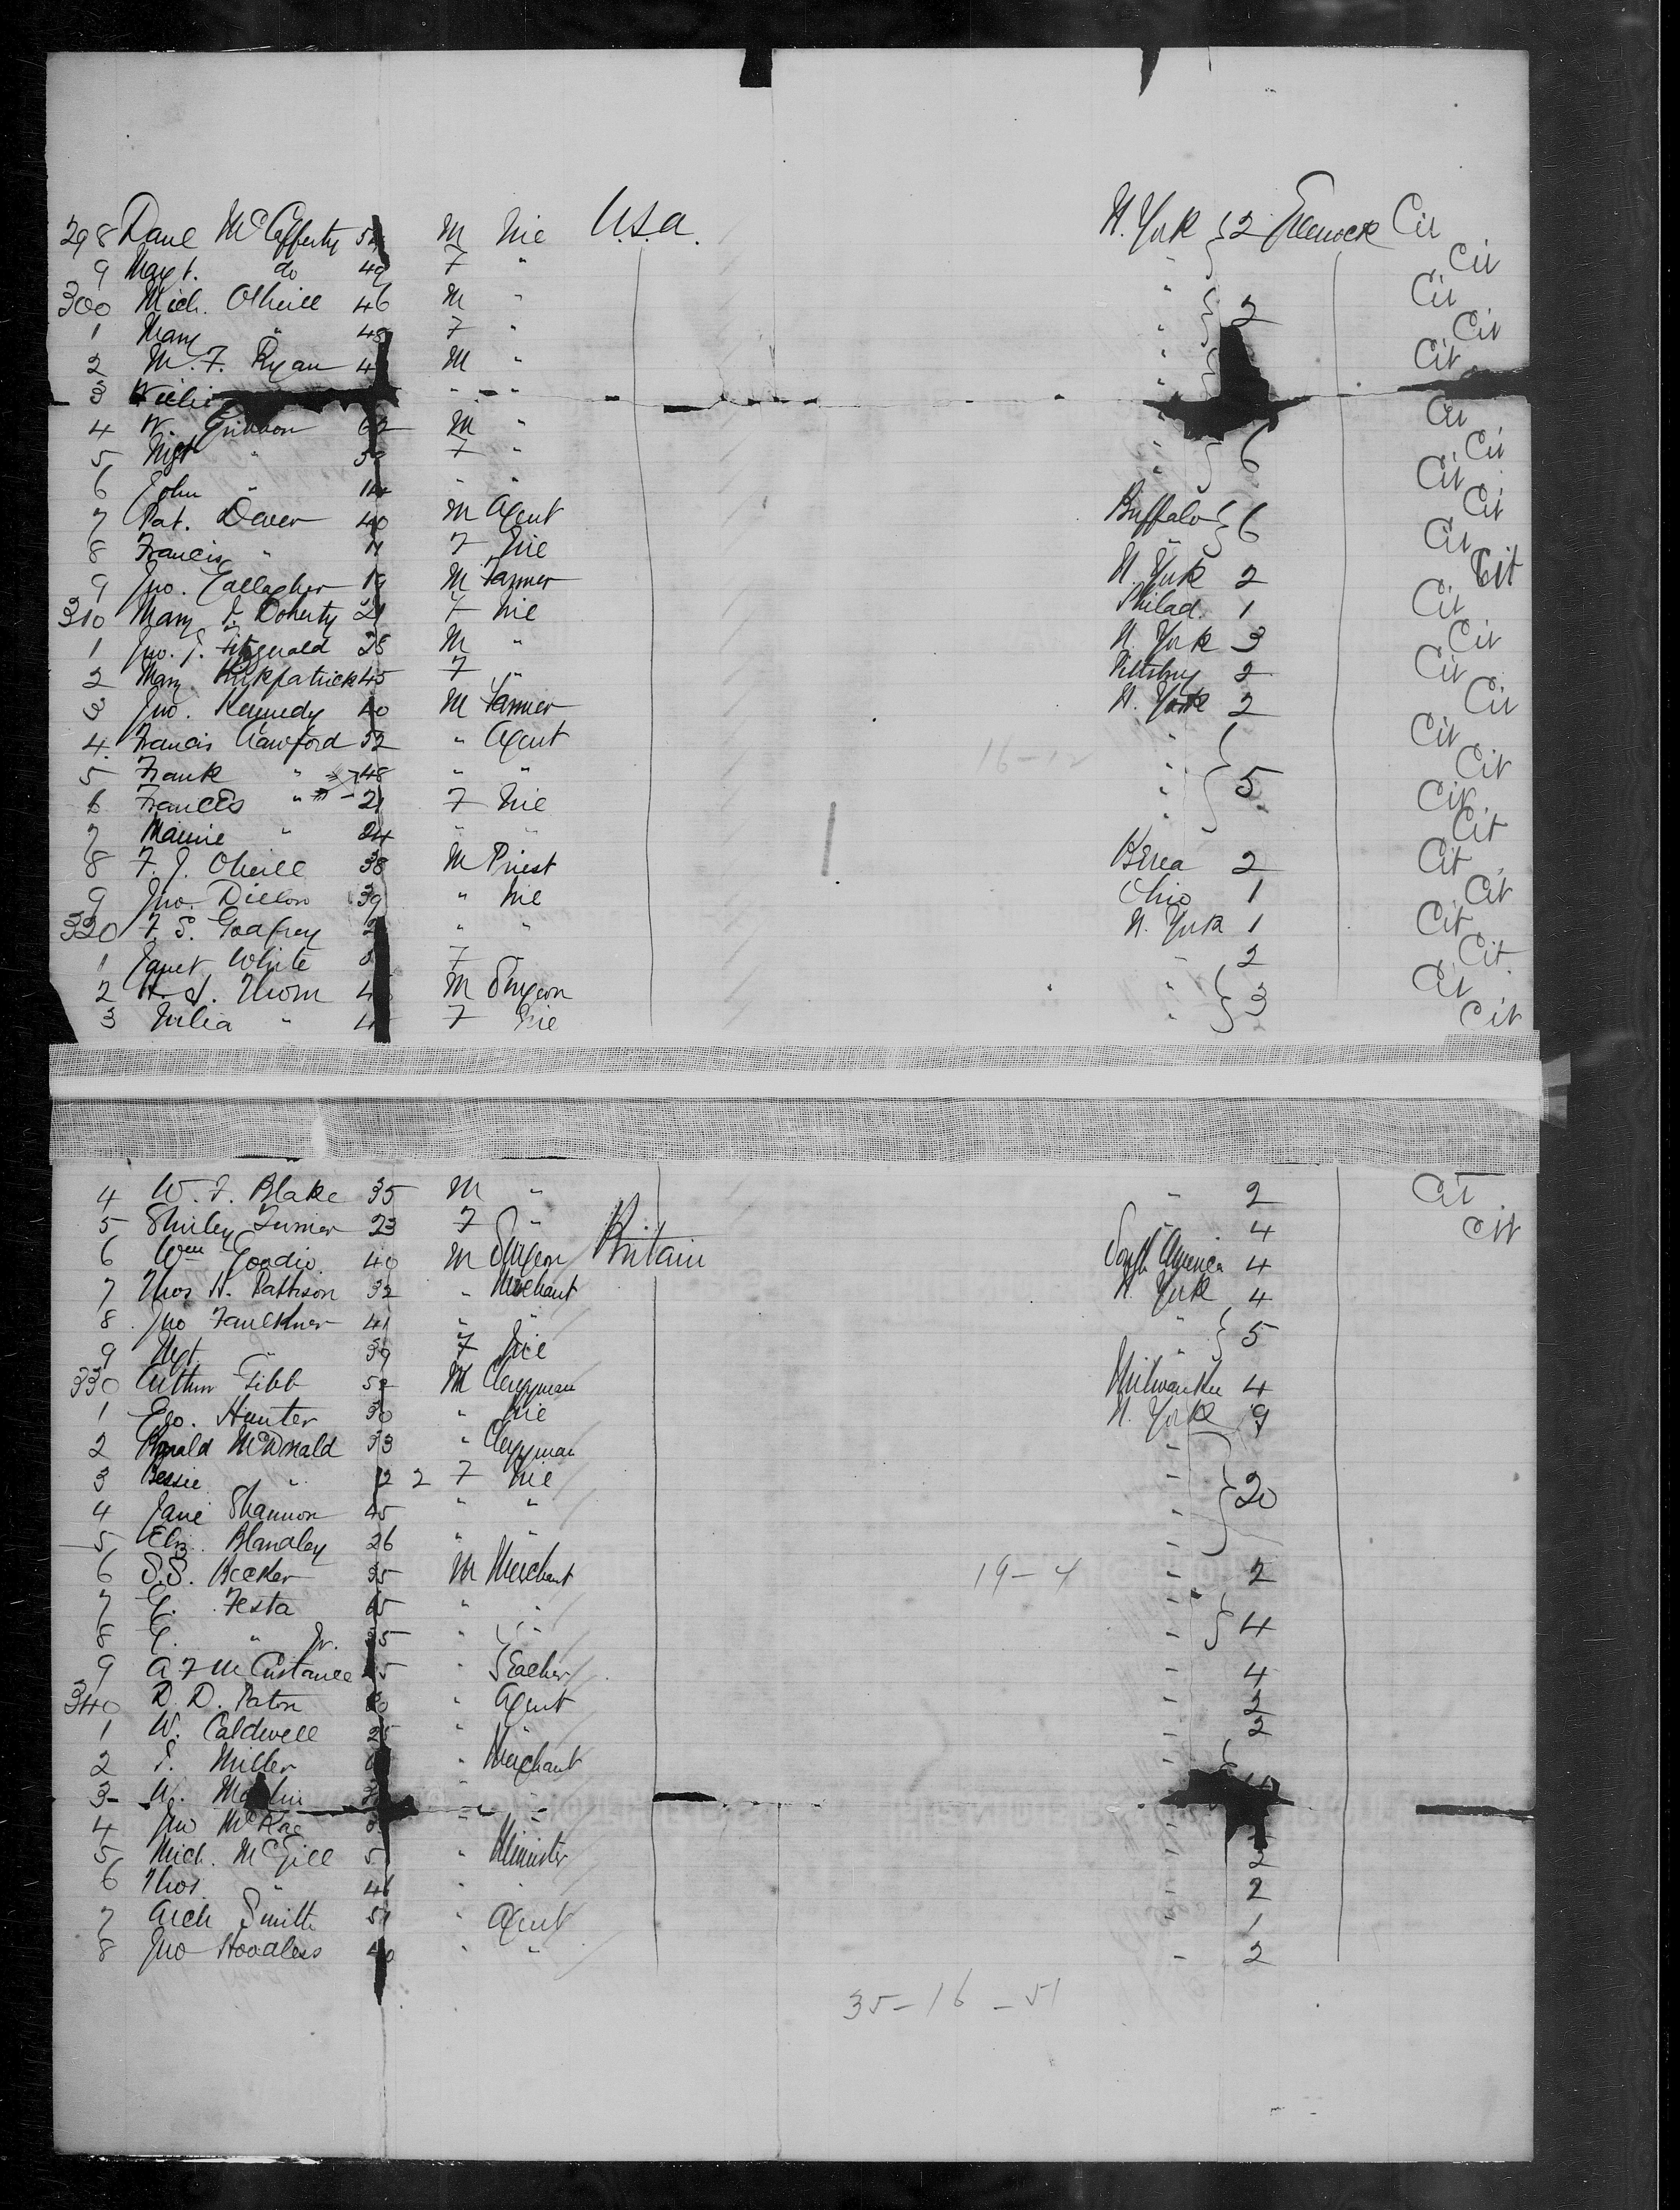 298 Danl McCafferty 5 M Nie U.S.a. N. York } 2 Cit
9 Magt. do 49 F " " Cit
300 Mich. ONeill 46 M " " } 2 Cit
1 Mary " 48 F " " Cit
2 M. F. Ryan 4 M " " } Cit
3 " " "
4 W. 62 M " " Cit
5 Mgt " 5 F " " } 6 Cit
6 John " 14 " " Cit
7 Pat. Dever 40 M Agent Buffalo } 6 Cit
8 Francis " 11 F Nie " Cit
9 Jno. Gallagher 19 M Farmer N. York 2 Cit
310 Mary J. Doherty 21 F Nie Philad. 1 Cit
1 Jno. J. Fitzgerald 28 M " N. York 3 Cit
2 Mary Kirkpatrick 45 F " Pittsburg 2 Cit
3 Jno. Kennedy 40 M Farmer N. York 2 Cit
4 Francis Crawford 52 " Agent " Cit
16-12
5 Frank " 48 " " " } 5 Cit
6 Frances " 21 F Nie " Cit
7 Mamie " 24 " " Cit
8 F. J. ONeill 38 M Priest Berea 2 Cit
9 Jno. Dillon 39 " Nie Ohio 1 Cit
320 F. S. Godfrey 2 " " N. York 1 Cit
1 Janet White F " 2 Cit
2 Thom 4 M Surgeon " } 3 Cit
3 Julia " 4 F Nie " Cit
4 W. F. Blake 35 M " " 2 Cit
5 Shirley Turner 23 F " " 4 Cit
6 Wm Goodio. 40 M Surgeon Britain South America 4
7 Thos H. Pattison 32 " Merchant N. York 4
8 Jno Faulkner 41 " " " } 5
9 Mgt. " 39 F Nie "
330 Arthur Gibb 52 M Clergyman Milwaukee 4
1 Geo. Hunter 30 " Nie N. York 9
2 Ronald McDonald 33 " Clergyman "
3 Bessie " 22 F Nie " } 20
4 Jane Shannon 45 " " "
5 Eliz. Blandley 26 " " "
6 S.S. Becker 35 M Merchant 19-4 " 2
7 G. Festa 65 " " " } 4
8 G. " Jr. 35 " " "
9 5 " Teacher " 4
340 D. D. Paton 30 " Agent " 2
1 W. Caldwell 25 " " " 2
2 Miller " Merchant "
3 W. " "
4 Jno McRae " "
5 Mich. McGill 5 " Minister " 2
6 Thos. " 46 " " " 2
7 Arch Smith 51 " Agent " 1
8 Jno Hoodless 40 " " " 2
35-16-51